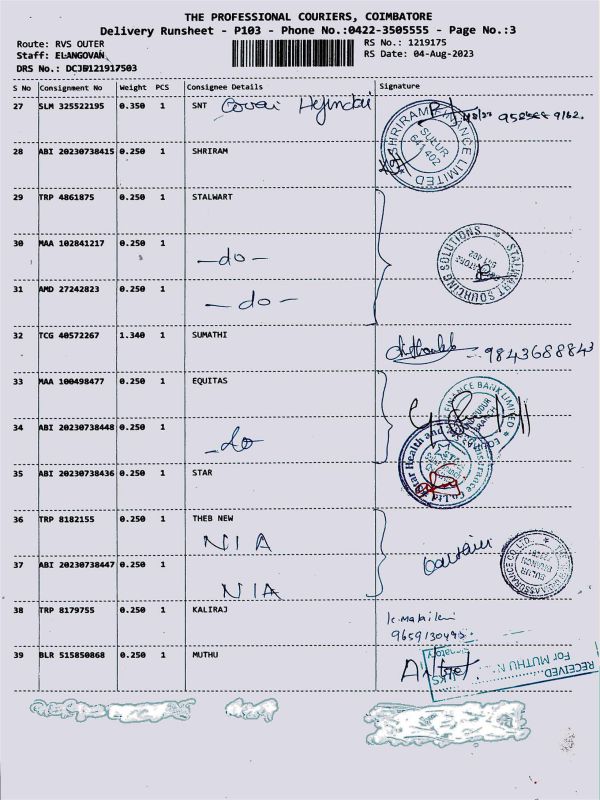 THE PROFESSIONAL COURIERS, COIMBATORE
Delivery Runsheet - P103 - Phone No.:0422-3505555 - Page No.:3
Route: RVS OUTER RS No.: 1219175
Staff: ELANGOVAN RS Date: 04-Aug-2023
DRS No.: DCJB121917503
S No Consignment No Weight PCS Consignee Details Signature
27 SLM 325522195 0.350 1 SNT Covai Hyundai
SHRIRAM FINANCE LIMITED
SULUR
641 402
28 ABI 20230738415 0.250 1 SHRIRAM
29 TRP 4861875 0.250 1 STALWART
30 MAA 102841217 0.250 1 -do-
STALWART SOURCING SOLUTIONS
641 402
31 AMD 27242823 0.250 1 -do-
32 TCG 40572267 1.340 1 SUMATHI 9843688843
33 MAA 100498477 0.250 1 EQUITAS
FINANCE BANK LIMITED
BRANCH
34 ABI 20230738448 0.250 1 -do
Star Health and Insurance Co Ltd
35 ABI 20230738436 0.250 1 STAR
36 TRP 8182155 0.250 1 THEB NEW
NIA
37 ABI 20230738447 0.250 1
NIA
ASSURANCE CO. LTD.
BRANCH
38 TRP 8179755 0.250 1 KALIRAJ
39 BLR 515850868 0.250 1 MUTHU
RECEIVED
For MUTHU